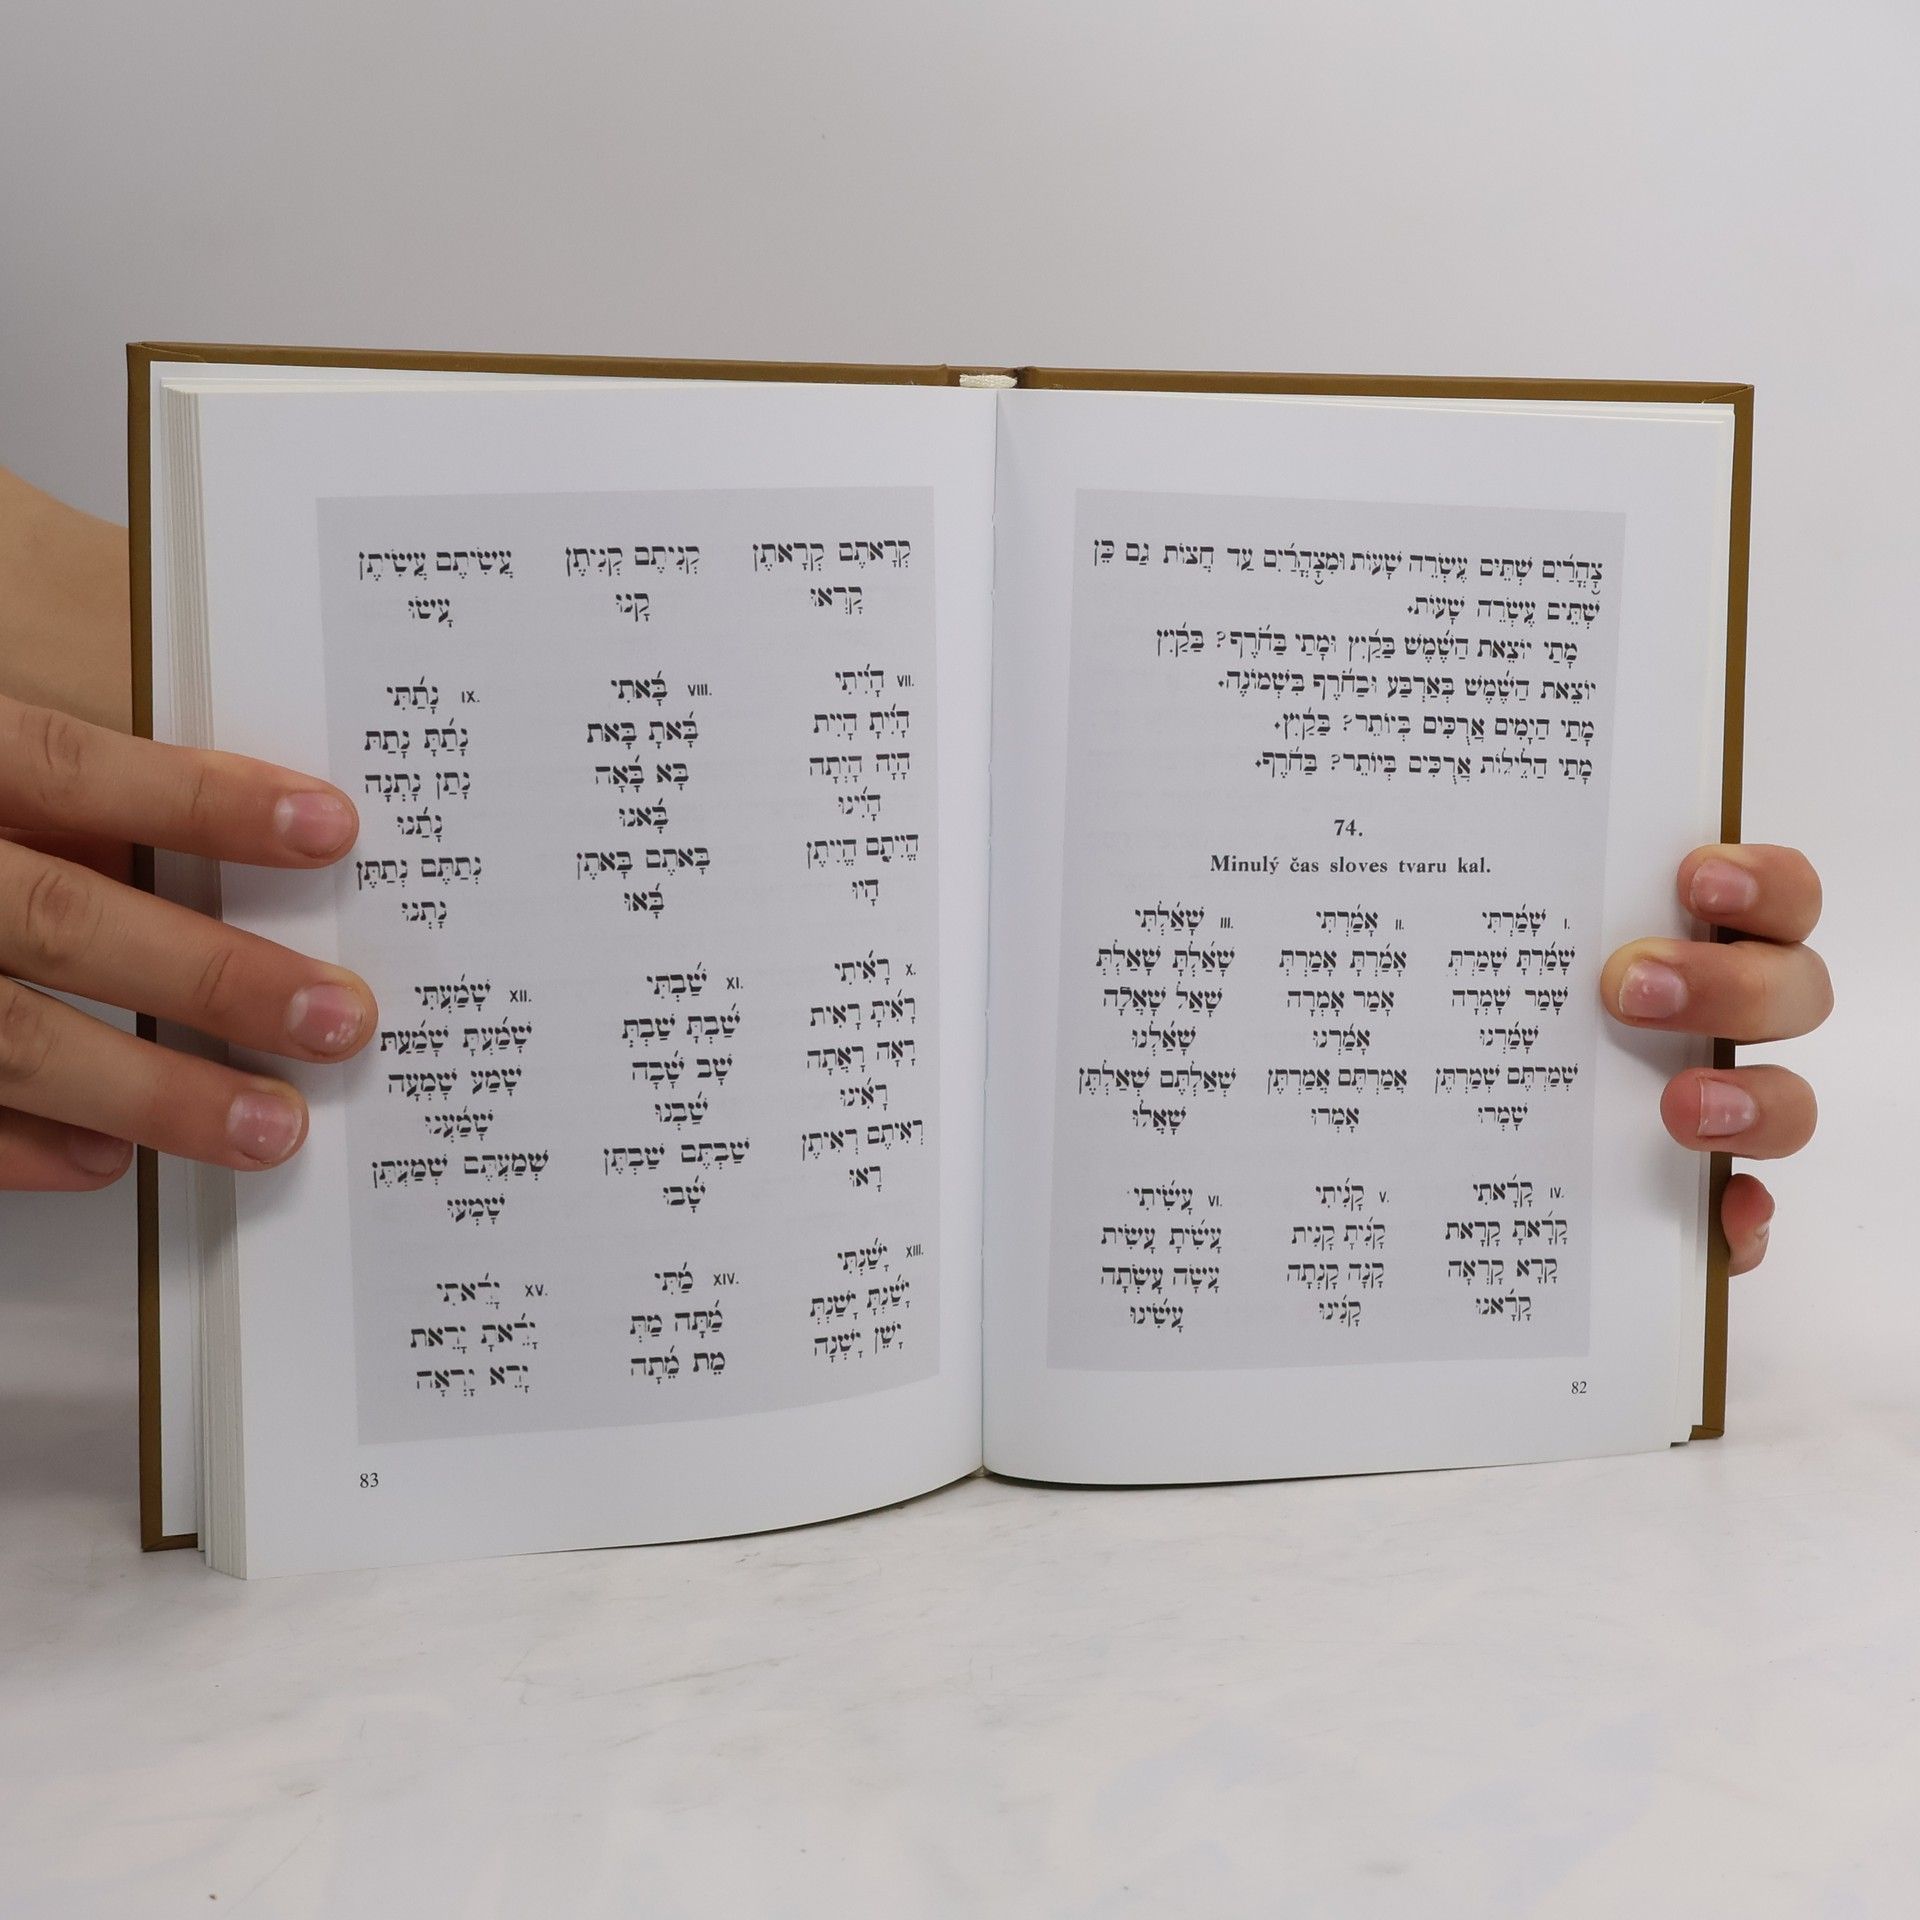 צָהֳרַיִם שְׁתֵּים עֶשְׂרֵה שָׁעוֹת וּמִצָּהֳרַיִם עַד חֲצוֹת גַּם כֵּן
שְׁתֵּים עֶשְׂרֵה שָׁעוֹת.
מָתַי יוֹצֵאת הַשֶּׁמֶשׁ בַּקַּיִץ וּמָתַי בַּחֹרֶף? בַּקַּיִץ
יוֹצֵאת הַשֶּׁמֶשׁ בְּאַרְבַּע וּבַחֹרֶף בִּשְׁמוֹנֶה.
מָתַי הַיָּמִים אֲרֻכִּים בְּיוֹתֵר? בַּקַּיִץ.
מָתַי הַלֵּילוֹת אֲרֻכִּים בְּיוֹתֵר? בַּחֹרֶף.
74.
Minulý čas sloves tvaru kal.
I. שָׁמַרְתִּי II. אָמַרְתִּי III. שָׁאַלְתִּי
שָׁמַרְתָּ שָׁמַרְתְּ אָמַרְתָּ אָמַרְתְּ שָׁאַלְתָּ שָׁאַלְתְּ
שָׁמַר שָׁמְרָה אָמַר אָמְרָה שָׁאַל שָׁאֲלָה
שָׁמַרְנוּ אָמַרְנוּ שָׁאַלְנוּ
שְׁמַרְתֶּם שְׁמַרְתֶּן אֲמַרְתֶּם אֲמַרְתֶּן שְׁאַלְתֶּם שְׁאַלְתֶּן
שָׁמְרוּ אָמְרוּ שָׁאֲלוּ
IV. קָרָאתִי V. קָנִיתִי VI. עָשִׂיתִי
קָרָאתָ קָרָאת קָנִיתָ קָנִית עָשִׂיתָ עָשִׂית
קָרָא קָרְאָה קָנָה קָנְתָה עָשָׂה עָשְׂתָה
קָרָאנוּ קָנִינוּ עָשִׂינוּ
82
קְרָאתֶם קְרָאתֶן קְנִיתֶם קְנִיתֶן עֲשִׂיתֶם עֲשִׂיתֶן
קָרְאוּ קָנוּ עָשׂוּ
VII. הָיִיתִי VIII. בָּאתִי IX. נָתַתִּי
הָיִיתָ הָיִית בָּאתָ בָּאת נָתַתָּ נָתַתְּ
הָיָה הָיְתָה בָּא בָּאָה נָתַן נָתְנָה
הָיִינוּ בָּאנוּ נָתַנּוּ
הֱיִיתֶם הֱיִיתֶן בָּאתֶם בָּאתֶן נְתַתֶּם נְתַתֶּן
הָיוּ בָּאוּ נָתְנוּ
X. רָאִיתִי XI. שַׁבְתִּי XII. שָׁמַעְתִּי
רָאִיתָ רָאִית שַׁבְתָּ שַׁבְתְּ שָׁמַעְתָּ שָׁמַעַתְּ
רָאָה רָאֲתָה שָׁב שָׁבָה שָׁמַע שָׁמְעָה
רָאִינוּ שַׁבְנוּ שָׁמַעְנוּ
רְאִיתֶם רְאִיתֶן שַׁבְתֶּם שַׁבְתֶּן שְׁמַעְתֶּם שְׁמַעְתֶּן
רָאוּ שָׁבוּ שָׁמְעוּ
XIII. יָשַׁנְתִּי XIV. מַתִּי XV. יָרֵאתִי
יָשַׁנְתָּ יָשַׁנְתְּ מַתָּה מַתְּ יָרֵאתָ יָרֵאת
יָשֵׁן יָשְׁנָה מֵת מֵתָה יָרֵא יָרְאָה
83